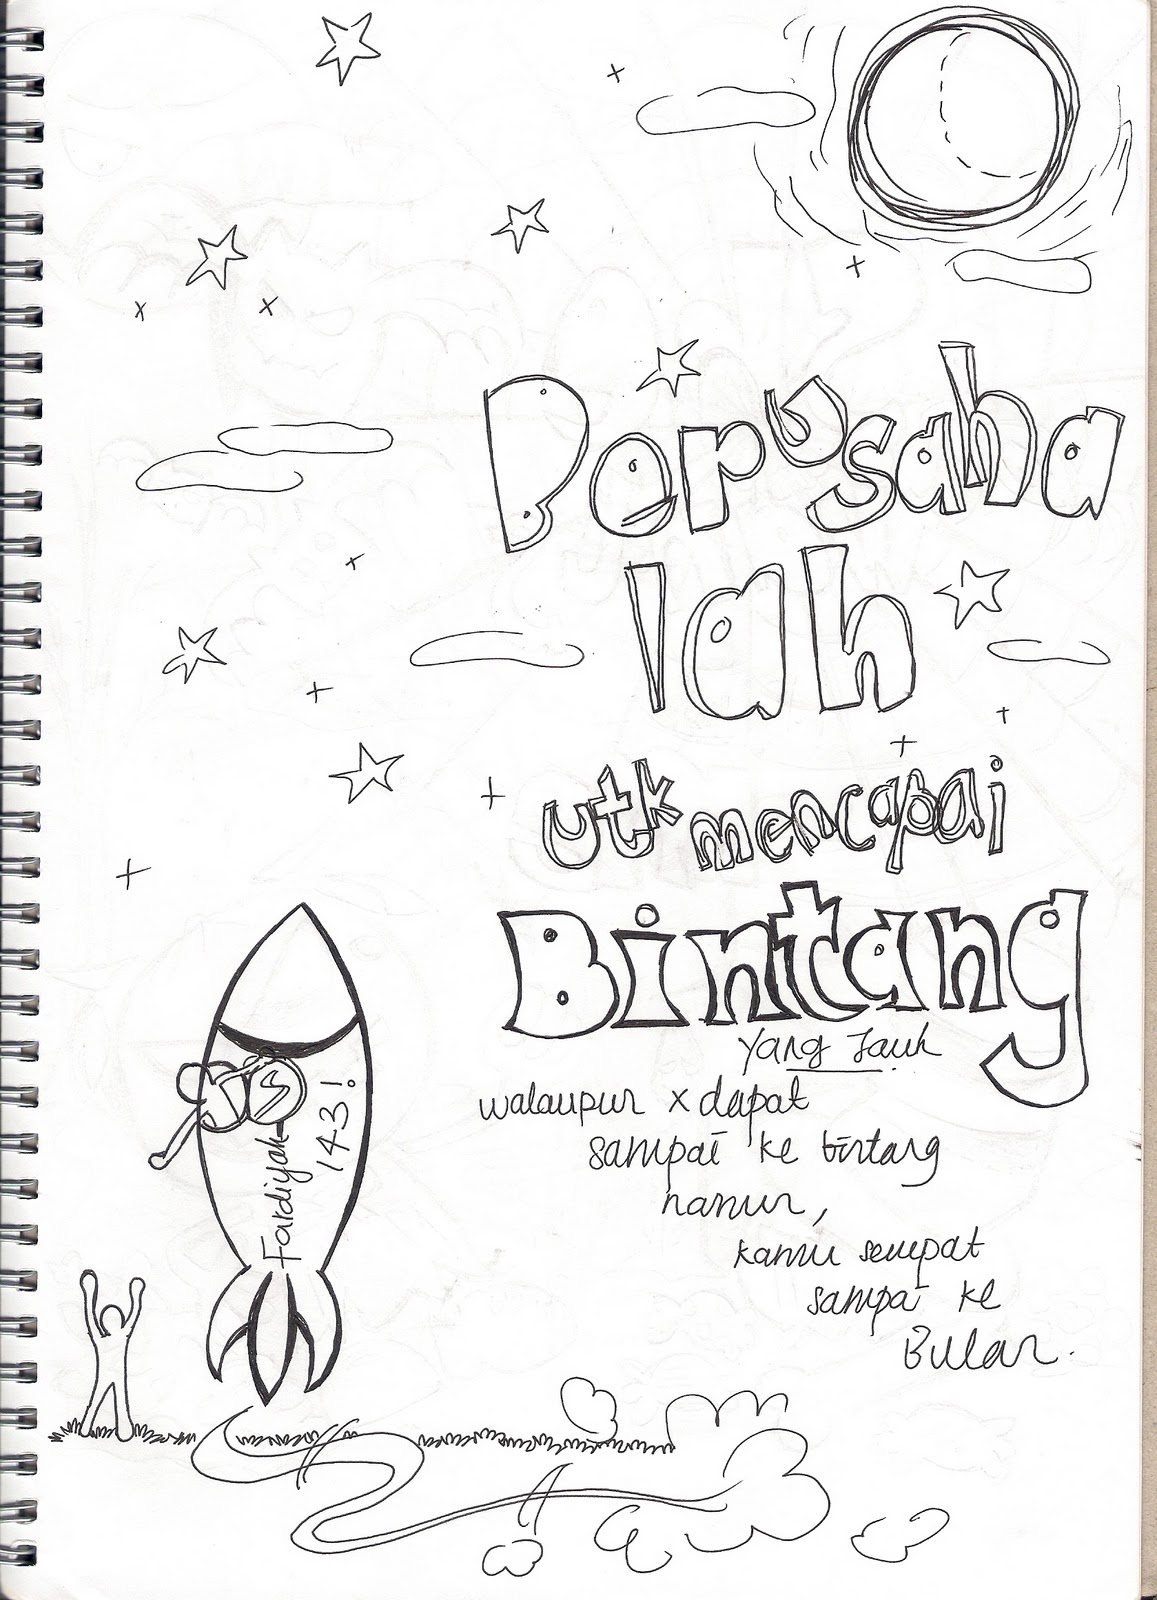 Berusaha
lah
utk mencapai
Bintang
yang Jauh
walaupun x dapat
sampai ke bintang
namun,
kamu sempat
sampai ke
Bulan.
Fardiyah
143!